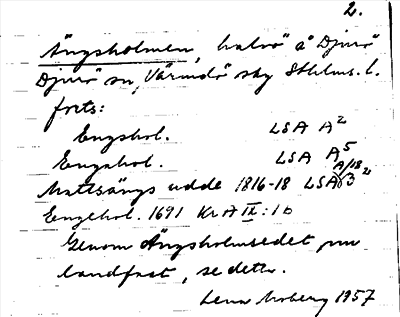 2.
Ängsholmen, halvö å Djurö
Djurö sn, Värmdö sky Sthlms. l.
forts:
Engshol. LSA A²
Engshol. LSA A⁵
Mattsängs udde 1816-18 LSA A/18 3²
Engehol. 1691 KrA IX:1b
Genom Ängsholmsedet nu
landfast, se detta.
Lena Moberg 1957